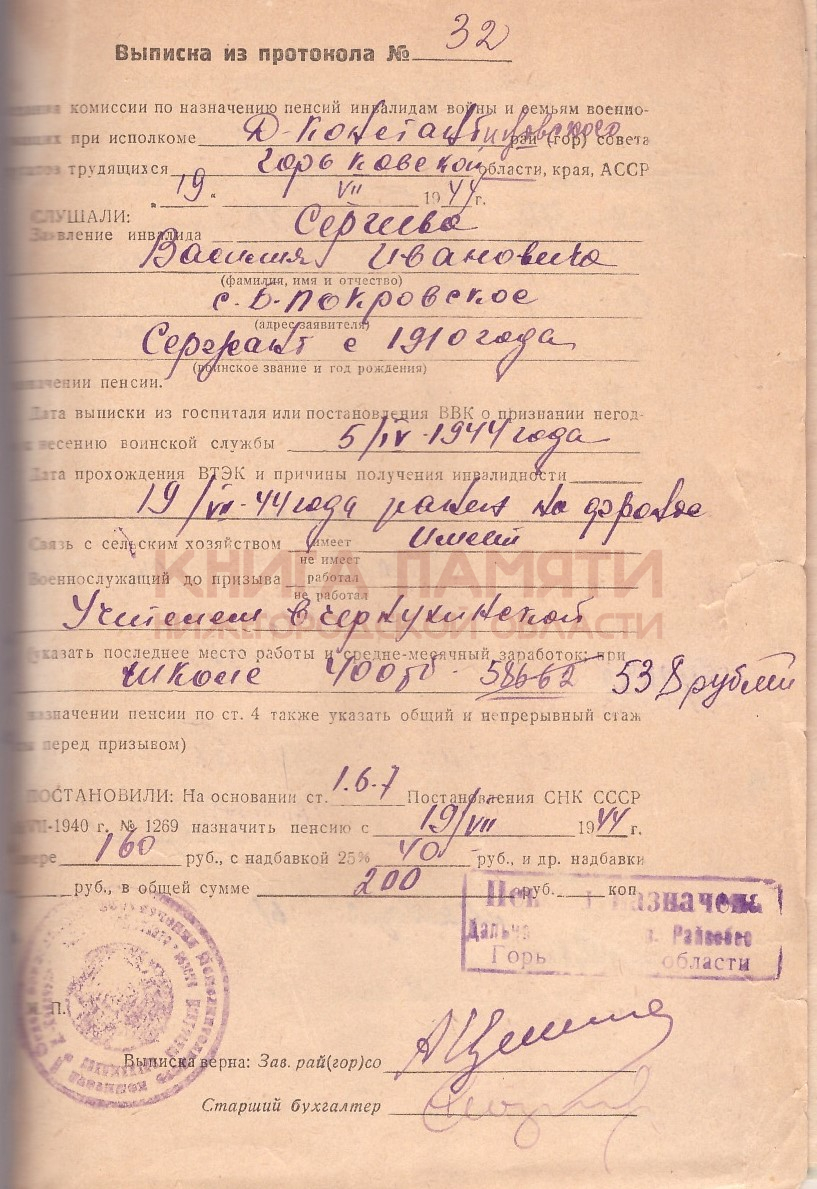 Выписка из протокола № 32
комиссии по назначению пенсий инвалидам войны и семьям военно-
при исполкоме Д-Константиновского рай (гор) совета
трудящихся Горьковской области, края, АССР
„19“ VII 1944 г.
СЛУШАЛИ:
Заявление инвалида Сергеева
Василия Ивановича
(фамилия, имя и отчество)
с. Б-Покровское
(адрес заявителя)
Сержант с 1910 года
(воинское звание и год рождения)
пенсии.
Дата выписки из госпиталя или постановления ВВК о признании негод-
несению воинской службы 5/IV-1944 года
Дата прохождения ВТЭК и причины получения инвалидности
19/VII-44 года ранен на фронте
Связь с сельским хозяйством имеет имеет
не имеет
Военнослужащий до призыва работал
не работал
КНИГА ПАМЯТИ
НИЖЕГОРОДСКОЙ ОБЛАСТИ
Учителем в Чернухинской
указать последнее место работы и средне-месячный заработок; при
школе 400 538 рублей
назначении пенсии по ст. 4 также указать общий и непрерывный стаж
перед призывом)
ПОСТАНОВИЛИ: На основании ст. 1.6.7 Постановления СНК СССР
VII-1940 г. № 1269 назначить пенсию с 19/VII 1944 г.
160 руб., с надбавкой 25% 40 руб., и др. надбавки
руб., в общей сумме 200 руб. коп.
назначена
Райсобес
области
М. П.
Выписка верна: Зав. рай(гор)со
Старший бухгалтер